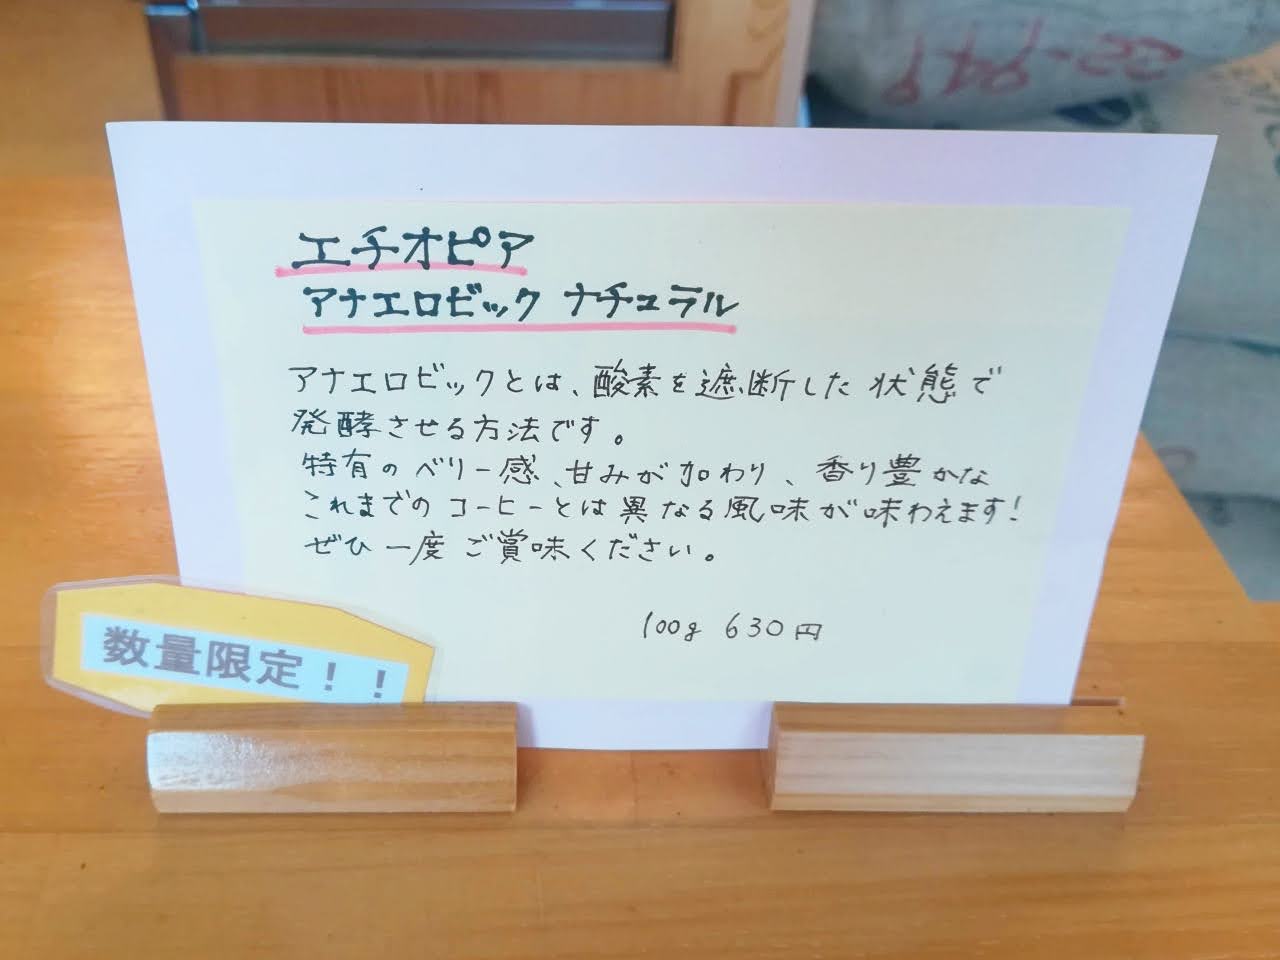 エチオピア
アナエロビック ナチュラル
アナエロビックとは、酸素を遮断した状態で
発酵させる方法です。
特有のベリー感、甘みが加わり、香り豊かな
これまでのコーヒーとは異なる風味が味わえます!
ぜひ一度ご賞味ください。
100g 630円
数量限定!!